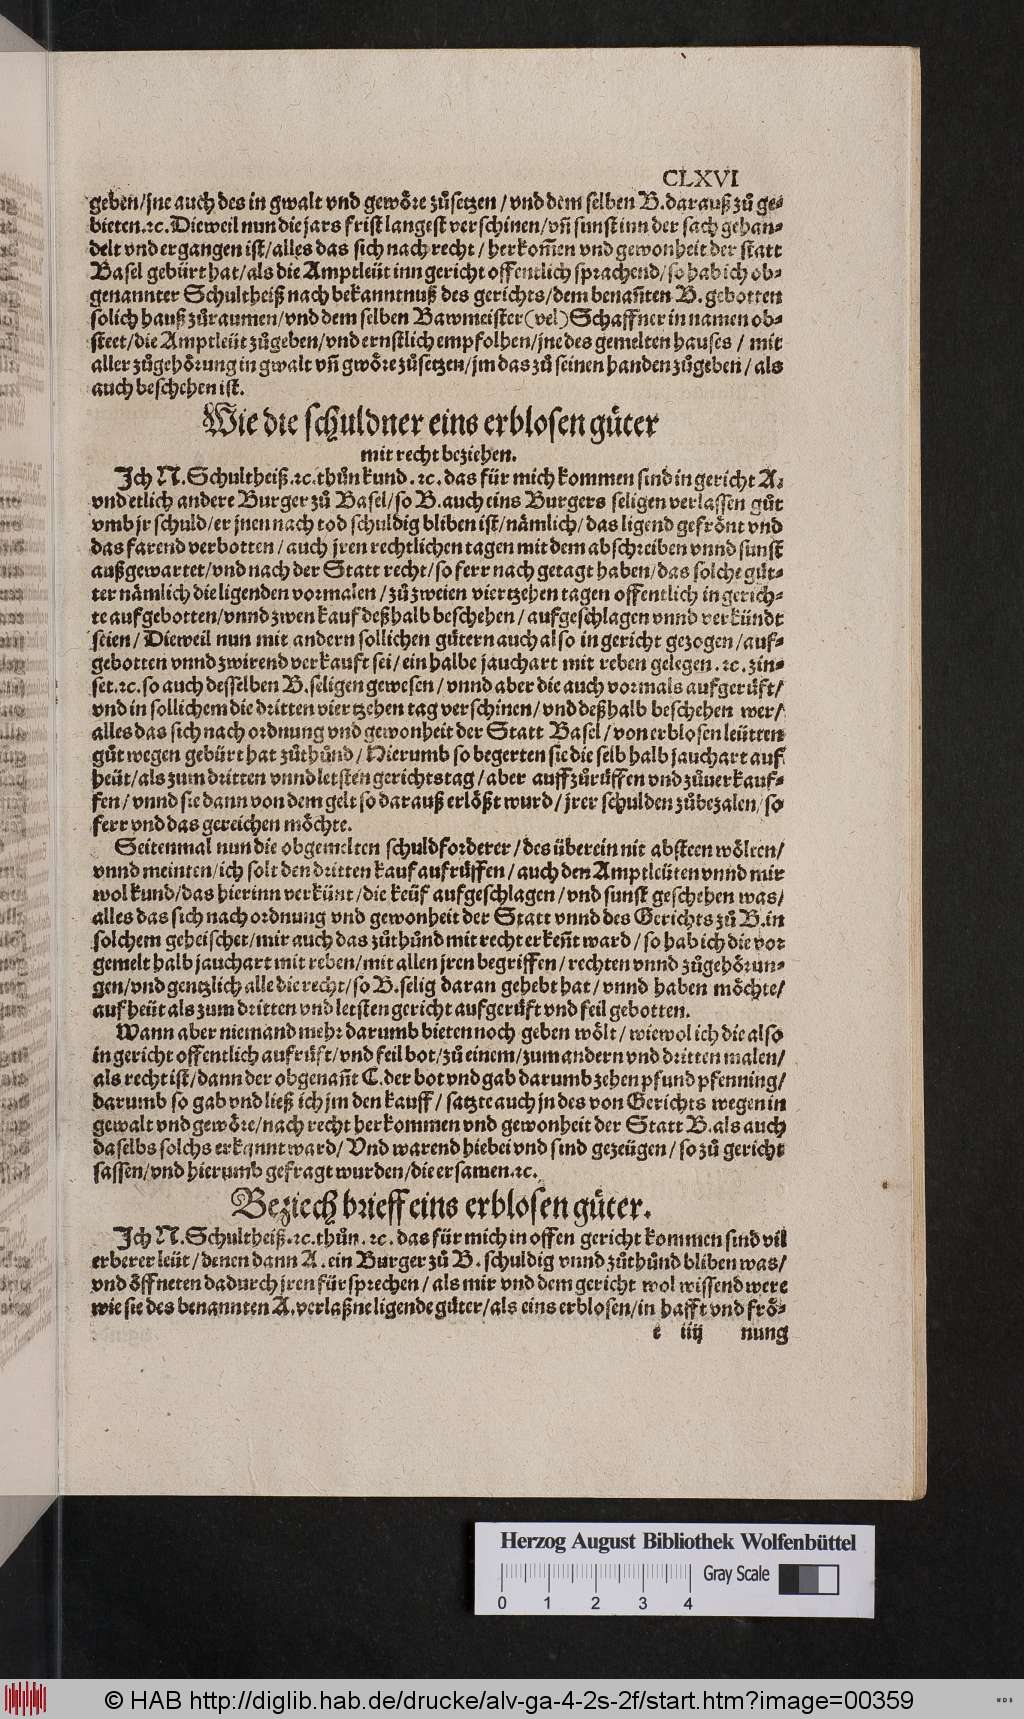 CLXVI
geben/jne auch des in gwalt vnd gewöre zůsetzen / vnd dem selben B. darauß zů ge-
bieten.ꝛc. Dieweil nun die jars frist langest verschinen/vn̄ sunst inn der sach gehan-
delt vnd ergangen ist/alles das sich nach recht / herkom̄en vnd gewonheit der statt
Basel gebürt hat/als die Amptleüt inn gericht offentlich sprachend/so hab ich ob-
genannter Schultheiß nach bekanntnuß des gerichts/dem benan̄ten B. gebotten
solich hauß zůraumen/vnd dem selben Bawmeister(vel)Schaffner in namen ob-
steet/die Amptleüt zůgeben/vnd ernstlich empfolhen/jne des gemelten hauses / mit
aller zůgehörung in gwalt vn̄ gwöre zůsetzen/jm das zů seinen handen zůgeben / als
auch beschehen ist.
Wie die schuldner eins erblosen gůter
mit recht beziehen.
Ich N. Schultheiß.ꝛc. thůn kund.ꝛc. das für mich kommen sind in gericht A.
vnd etlich andere Burger zů Basel/so B. auch eins Burgers seligen verlassen gůt
vmb jr schuld/er jnen nach tod schuldig bliben ist/nämlich/das ligend gefrönt vnd
das farend verbotten / auch jren rechtlichen tagen mit dem abschreiben vnnd sunst
außgewartet/vnd nach der Statt recht/so ferr nach getagt haben/das solche gůt-
ter nämlich die ligenden vormalen / zů zweien viertzehen tagen offentlich in gerich-
te aufgebotten/vnnd zwen kauf deßhalb beschehen / aufgeschlagen vnnd verkündt
seien / Dieweil nun mit andern sollichen gůtern auch also in gericht gezogen / auf-
gebotten vnnd zwirend verkauft sei / ein halbe jauchart mit reben gelegen.ꝛc. zin-
set.ꝛc. so auch desselben B. seligen gewesen / vnnd aber die auch vormals aufgerůft/
vnd in sollichem die dritten viertzehen tag verschinen/vnd deßhalb beschehen wer/
alles das sich nach ordnung vnd gewonheit der Statt Basel / von erblosen leütten
gůt wegen gebürt hat zůthůnd / Hierumb so begerten sie die selb halb jauchart auf
heüt/als zum dritten vnnd letsten gerichtstag / aber auffzůrůffen vnd zůuerkauf-
fen / vnnd sie dann von dem gelt so darauß erlößt wurd / jrer schulden zůbezalen/so
ferr vnd das gereichen möchte.
Seitenmal nun die obgemelten schuldforderer / des überein nit absteen wölten/
vnnd meinten/ich solt den dritten kauf aufrůffen / auch den Amptleüten vnnd mir
wol kund/das hierinn verkünt/die keüf aufgeschlagen / vnd sunst geschehen was/
alles das sich nach ordnung vnd gewonheit der Statt vnnd des Gerichts zů B. in
solchem geheischet/mir auch das zůthůnd mit recht erken̄t ward / so hab ich die vor
gemelt halb jauchart mit reben/mit allen jren begriffen / rechten vnnd zůgehörun-
gen/vnd gentzlich alle die recht/so B. selig daran gehebt hat / vnnd haben möchte/
auf heüt als zum dritten vnd letsten gericht aufgerůft vnd feil gebotten.
Wann aber niemand mehr darumb bieten noch geben wölt / wiewol ich die also
in gericht offentlich aufrůft/vnd feil bot/zů einem/zum andern vnd dritten malen/
als recht ist/dann der obgenan̄t C. der bot vnd gab darumb zehen pfund pfenning/
darumb so gab vnd ließ ich jm den kauff / satzte auch jn des von Gerichts wegen in
gewalt vnd gewöre/nach recht herkommen vnd gewonheit der Statt B. als auch
daselbs solchs erkannt ward / Vnd warend hiebei vnd sind gezeügen / so zů gericht
sassen/vnd hierumb gefragt wurden/die ersamen.ꝛc.
Beziech brieff eins erblosen gůter.
Ich N. Schultheiß.ꝛc. thůn.ꝛc. das für mich in offen gericht kommen sind vil
erberer leüt / denen dann A. ein Burger zů B. schuldig vnnd zůthůnd bliben was/
vnd öffneten dadurch jren fürsprechen / als mir vnd dem gericht wol wissend were
wie sie des benannten A. verlaßne ligende gůter/als eins erblosen/in hafft vnd frö-
e iiij nung
Herzog August Bibliothek Wolfenbüttel
Gray Scale
0 1 2 3 4
© HAB http://diglib.hab.de/drucke/alv-ga-4-2s-2f/start.htm?image=00359